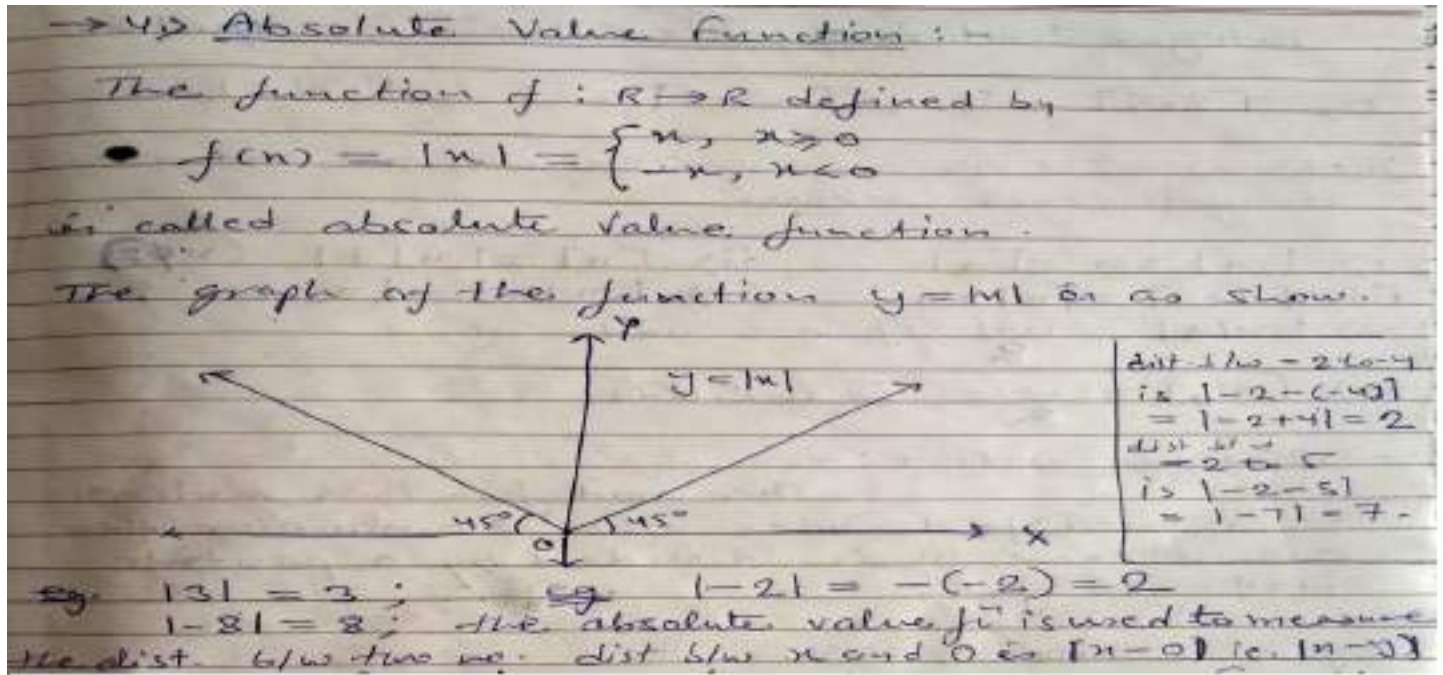 → 4) Absolute Value Function :-
The function f : R → R defined by
f(x) = |x| = { x, x ≥ 0
-x, x < 0
is called absolute value function.
The graph of the function y = |x| is as show.
Y
y = |x|
45° 45°
O
X
dist b/w -2 to -4
is |-2-(-4)|
= |-2+4| = 2
dist b/w
-2 to 5
is |-2-5|
= |-7| = 7.
eg. |3| = 3 ; eg. |-2| = -(-2) = 2
|-8| = 8 ; the absolute value fn is used to measure
the dist. b/w two no. dist b/w x and 0 is |x-0| ie.